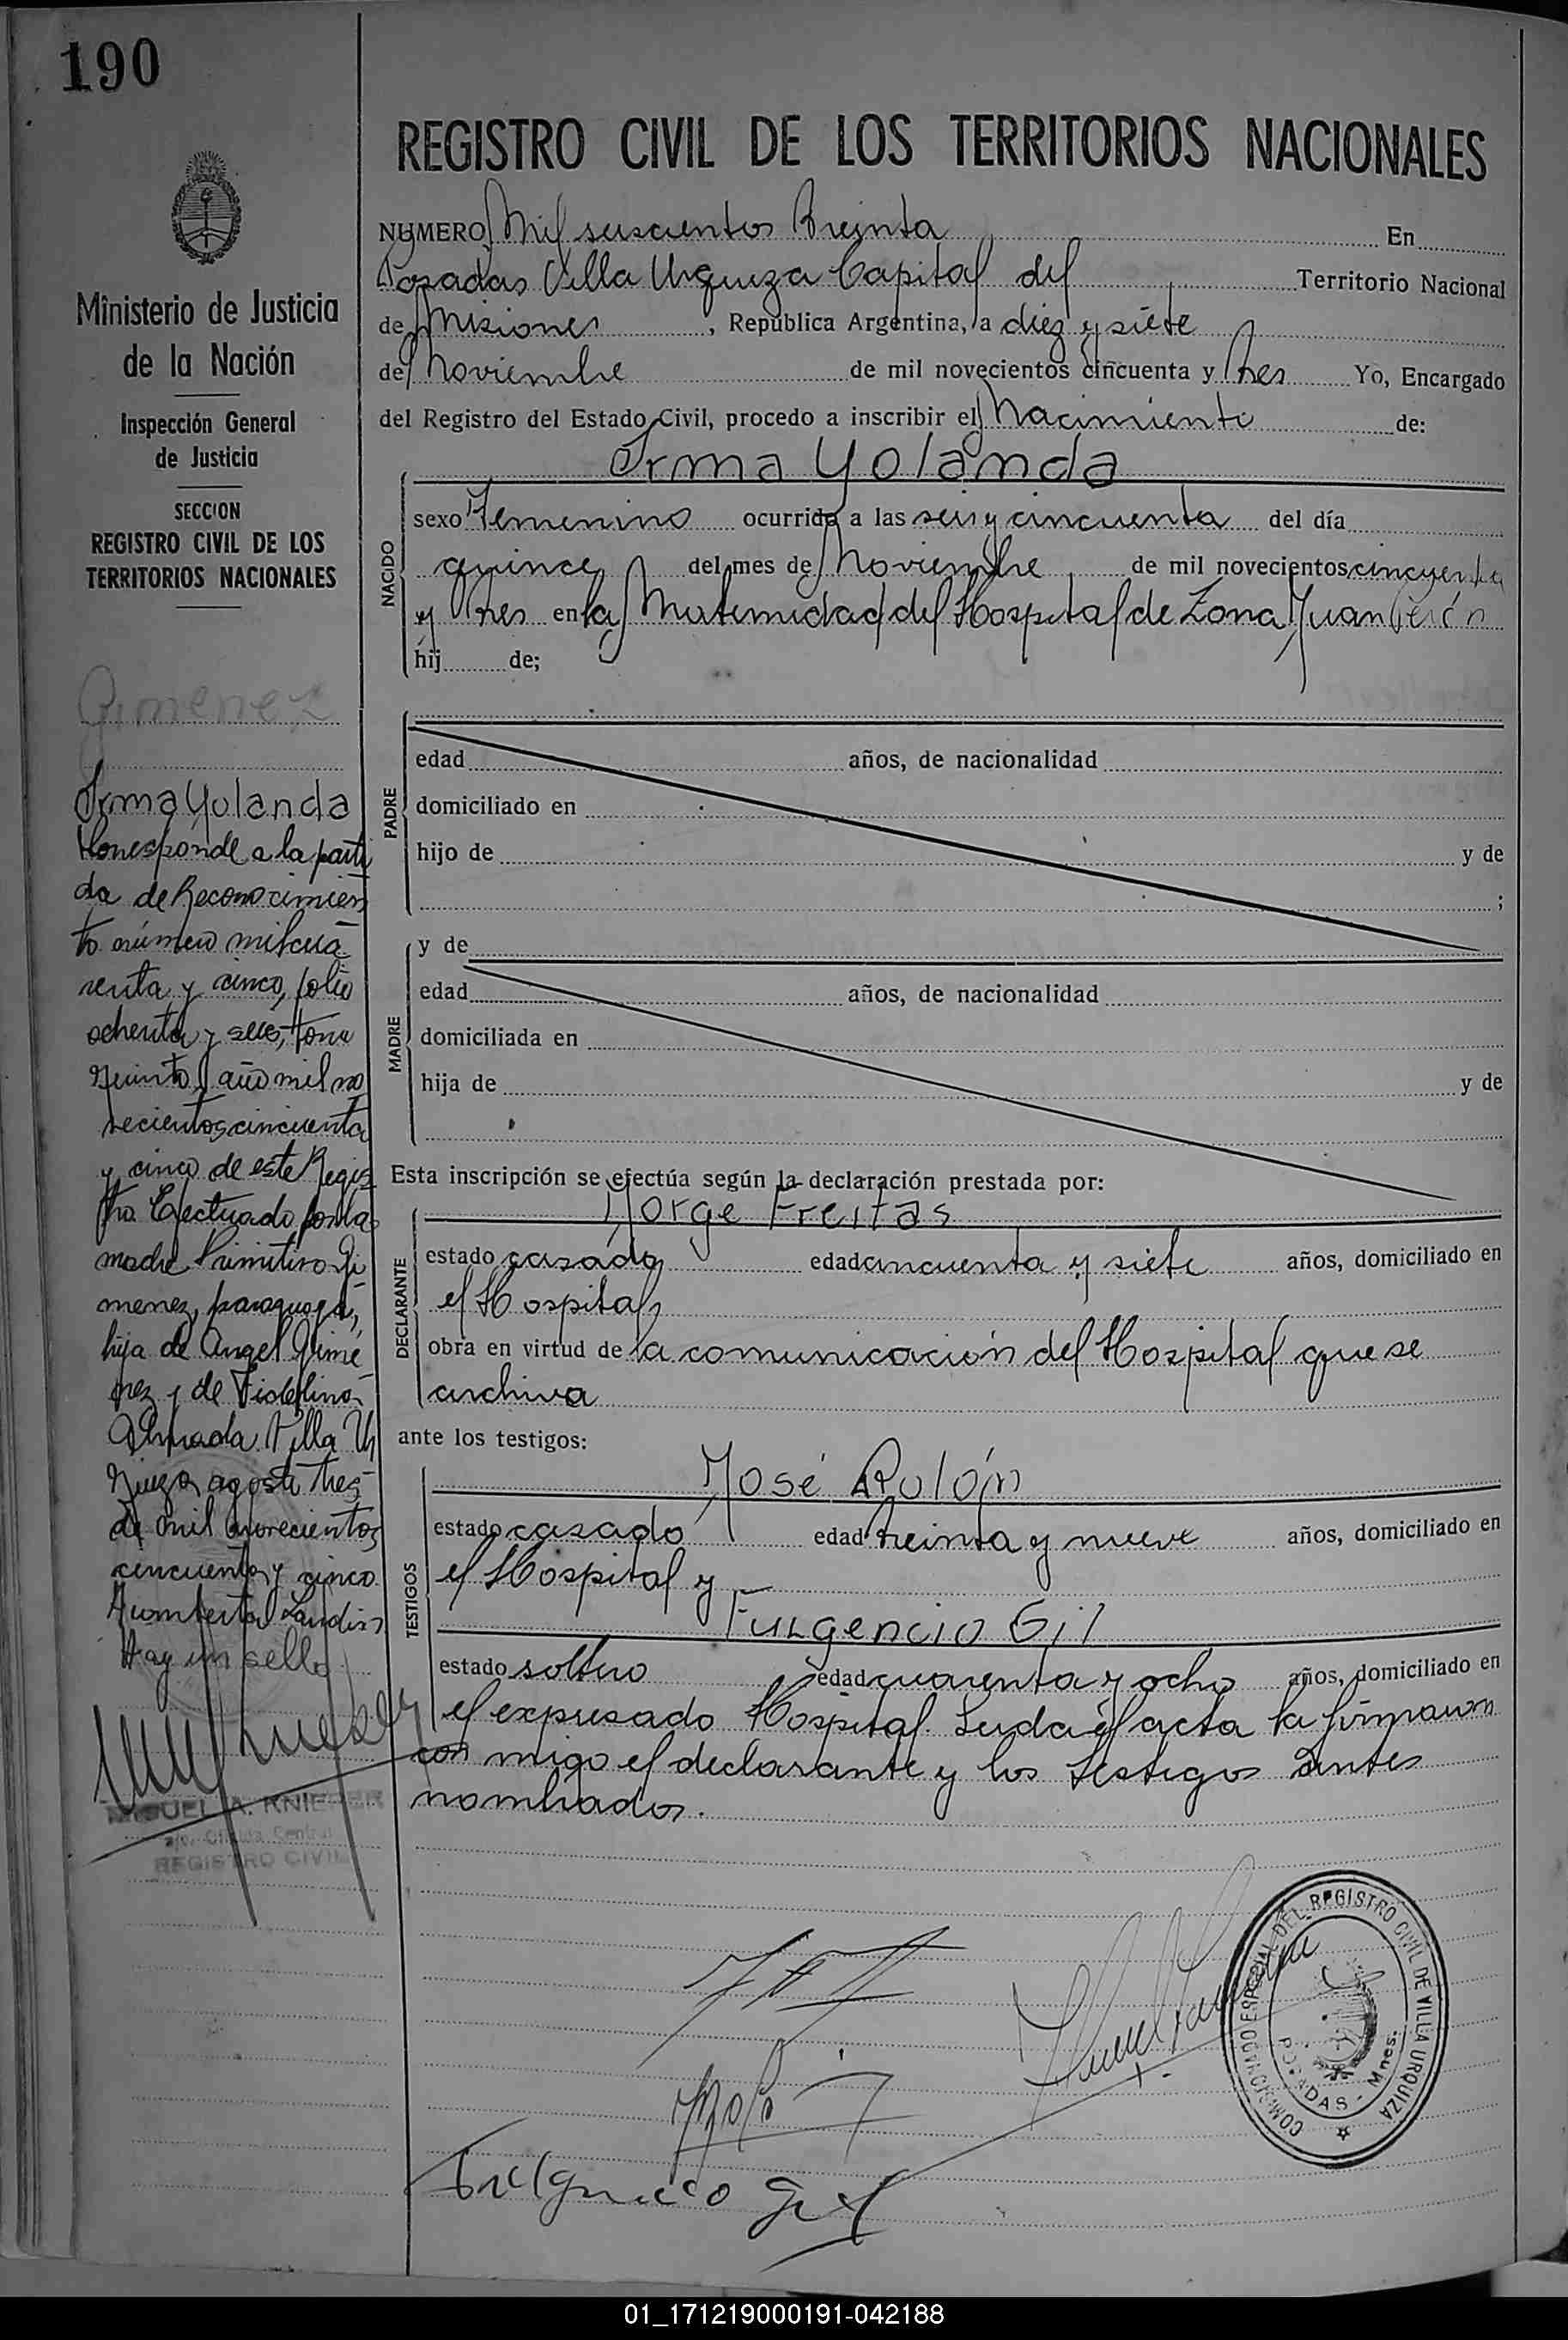 190
REGISTRO CIVIL DE LOS TERRITORIOS NACIONALES
NUMERO Mil seiscientos treinta En
Posadas Villa Urquiza Capital del Territorio Nacional
de Misiones, República Argentina, a diez y siete
de Noviembre de mil novecientos cincuenta y tres Yo, Encargado
del Registro del Estado Civil, procedo a inscribir el Nacimiento de:
Irma Yolanda
NACIDO
sexo Femenino ocurrido a las seis y cincuenta del día
quince del mes de Noviembre de mil novecientos cincuenta
y tres en la Maternidad del Hospital de Zona Juan Perón
hij de;
PADRE
edad años, de nacionalidad
domiciliado en
hijo de y de
;
MADRE
y de
edad años, de nacionalidad
domiciliada en
hija de y de
Esta inscripción se efectúa según la declaración prestada por:
Jorge Freitas
DECLARANTE
estado casado edad cincuenta y siete años, domiciliado en
el Hospital
obra en virtud de la comunicación del Hospital que se
archiva
ante los testigos:
José Rolón
TESTIGOS
estado casado edad treinta y nueve años, domiciliado en
el Hospital y
Fulgencio Gil
estado soltero edad cuarenta y ocho años, domiciliado en
el expresado Hospital. Leida el acta la firmaron
con migo el declarante y los testigos antes
nombrados.
Fulgencio Gil
COMISIONADO ESPECIAL DEL REGISTRO CIVIL DE VILLA URQUIZA
POSADAS - Mnes.
Ministerio de Justicia
de la Nación
Inspección General
de Justicia
SECCION
REGISTRO CIVIL DE LOS
TERRITORIOS NACIONALES
Gimenez
Irma Yolanda
Corresponde a la parti
da de Reconocimien
to número mil cua
renta y cinco, folio
ochenta y seis, tomo
quinto, año mil no
vecientos cincuenta
y cinco de este Regis
tro. Efectuado por la
madre Primitiva Gi
menez, paraguaya,
hija de Angel Gime
nez y de Fidelina
Almada. Villa Ur
quiza agosto tres
de mil novecientos
cincuenta y cinco
Humberto Landis
Hay un sello
MIGUEL A. KNIEPER
a/c. Oficina Central
REGISTRO CIVIL
01_171219000191-042188